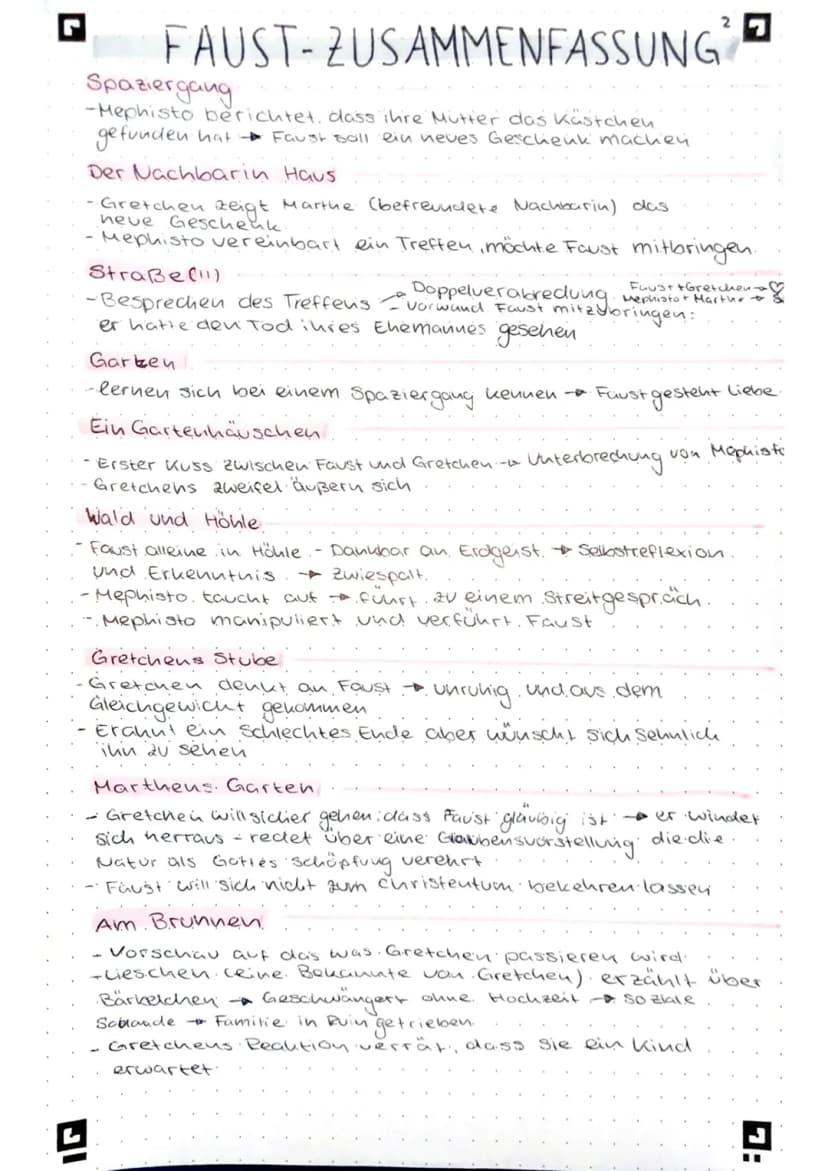 FAUST-ZUSAMMENFASSUNG²
Spaziergang
-Mephisto berichtet, dass ihre Mutter das Kästchen
gefunden hat → Faust soll ein neues Geschenk machen
Der Nachbarin Haus
- Gretchen zeigt Marthe (befreundete Nachbarin) das
neue Geschenk
- Mephisto vereinbart ein Treffen, möchte Faust mitbringen
Straße (II)
-Besprechen des Treffens → Doppelverabredung Faust+Gretchen→♡
Mephisto+Marthe→
- Vorwand Faust mitzubringen:
er hatte den Tod ihres Ehemannes gesehen
Garten
-lernen sich bei einem Spaziergang kennen → Faust gesteht Liebe
Ein Gartenhäuschen
- Erster Kuss zwischen Faust und Gretchen → Unterbrechung von Mephisto
- Gretchens zweifel äußern sich
Wald und Höhle
- Faust alleine in Höhle - Dankbar an Erdgeist → Selbstreflexion
und Erkenntnis → Zwiespalt
- Mephisto taucht auf → führt zu einem Streitgespräch
- Mephisto manipuliert und verführt Faust
Gretchens Stube
- Gretchen denkt an Faust → unruhig und aus dem
Gleichgewicht gekommen
- Erahnt ein schlechtes Ende aber wünscht sich sehnlich
ihn zu sehen
Marthens Garten
- Gretchen will sicher gehen, dass Faust gläubig ist → er windet
sich herraus - redet über eine Glaubensvorstellung die die
Natur als Gottes Schöpfung verehrt
- Faust will sich nicht zum Christentum bekehren lassen
Am Brunnen
- Vorschau auf das was Gretchen passieren wird
- Lieschen (eine Bekannte von Gretchen) erzählt über
Bärbelchen → Geschwängert ohne Hochzeit → soziale
Schande → Familie in Ruin getrieben
- Gretchens Reaktion verrät, dass sie ein Kind
erwartet